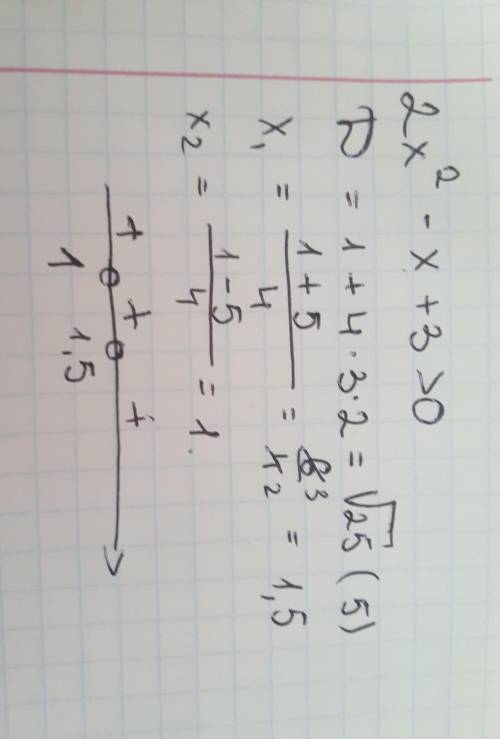 2x² - x + 3 > 0
D = 1 + 4·3·2 = √25 (5)
x₁ = (1 + 5)/4 = 6 3/4 2 = 1,5
x₂ = (1 - 5)/4 = 1.
+ + +
1 1,5